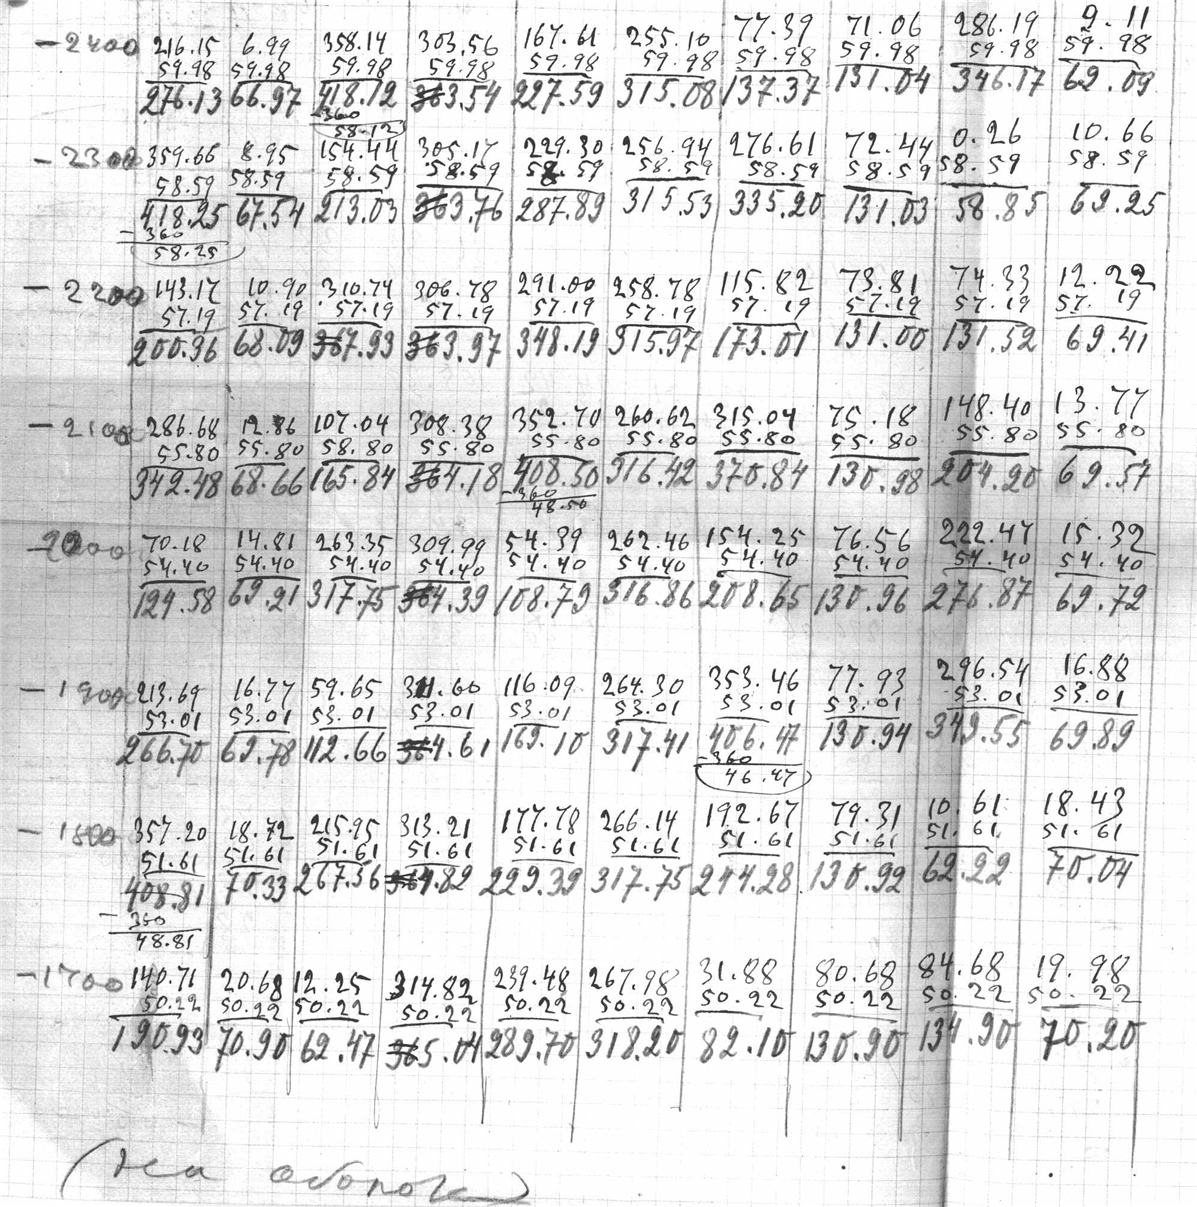 -2400 216.15 6.99 358.14 303.56 167.61 255.10 77.39 71.06 286.19 9.11
59.98 59.98 59.98 59.98 59.98 59.98 59.98 59.98 59.98 59.98
276.13 66.97 418.12 363.54 227.59 315.08 137.37 131.04 346.17 69.09
-360
58.12
-2300 359.66 8.95 154.44 305.17 229.30 256.94 276.61 72.44 0.26 10.66
58.59 58.59 58.59 58.59 58.59 58.59 58.59 58.59 58.59 58.59
418.25 67.54 213.03 363.76 287.89 315.53 335.20 131.03 58.85 69.25
-360
58.25
-2200 143.17 10.90 310.74 306.78 291.00 258.78 115.82 73.81 74.33 12.22
57.19 57.19 57.19 57.19 57.19 57.19 57.19 57.19 57.19 57.19
200.36 68.09 367.93 363.97 348.19 315.97 173.01 131.00 131.52 69.41
-2100 286.68 12.86 107.04 308.38 352.70 260.62 315.04 75.18 148.40 13.77
55.80 55.80 58.80 55.80 55.80 55.80 55.80 55.80 55.80 55.80
342.48 68.66 165.84 364.18 408.50 316.42 370.84 130.98 204.20 69.57
-360
48.50
-2000 70.18 14.81 263.35 309.99 54.39 262.46 154.25 76.56 222.47 15.32
54.40 54.40 54.40 54.40 54.40 54.40 54.40 54.40 54.40 54.40
124.58 69.21 317.75 364.39 108.79 316.86 208.65 130.96 276.87 69.72
-1900 213.69 16.77 59.65 311.60 116.09 264.30 353.46 77.93 296.54 16.88
53.01 53.01 53.01 53.01 53.01 53.01 53.01 53.01 53.01 53.01
266.70 69.78 112.66 364.61 169.10 317.41 406.47 130.94 349.55 69.89
-360
46.47
-1800 357.20 18.72 215.95 313.21 177.78 266.14 192.67 79.31 10.61 18.43
51.61 51.61 51.61 51.61 51.61 51.61 51.61 51.61 51.61 51.61
408.81 70.33 267.56 364.82 229.39 317.75 244.28 130.92 62.22 70.04
-360
48.81
-1700 140.71 20.68 12.25 314.82 239.48 267.98 31.88 80.68 84.68 19.98
50.22 50.22 50.22 50.22 50.22 50.22 50.22 50.22 50.22 50.22
190.93 70.90 62.47 365.04 289.70 318.20 82.10 130.90 134.90 70.20
(на обороте)